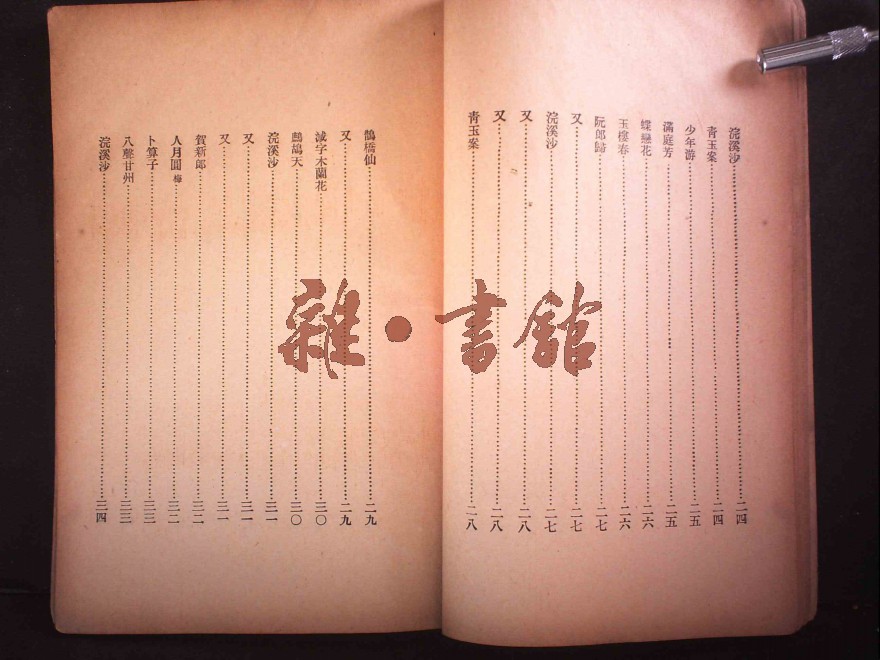 浣溪沙……二四
青玉案……二四
少年游……二五
滿庭芳……二五
蝶戀花……二六
玉樓春……二六
阮郎歸……二七
又……二七
浣溪沙……二七
又……二八
又……二八
青玉案……二八
鵲橋仙……二九
又……二九
減字木蘭花……三〇
鷓鴣天……三〇
浣溪沙……三一
又……三一
又……三一
賀新郎……三二
人月圓 梅……三二
卜算子……三三
八聲甘州……三三
浣溪沙……三四
雜·書館